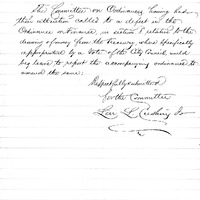 The Committee on Ordinances having had
their attention called to a defect in the
Ordinance on Finance, in section 1 relative to the
drawing of money from the Treasury, when specifically
appropriated by a Vote of the City Council would
beg leave to report the accompanying ordinance to
amend the same.
Respectfully submitted
For the Committee
Geo. L. Cushing